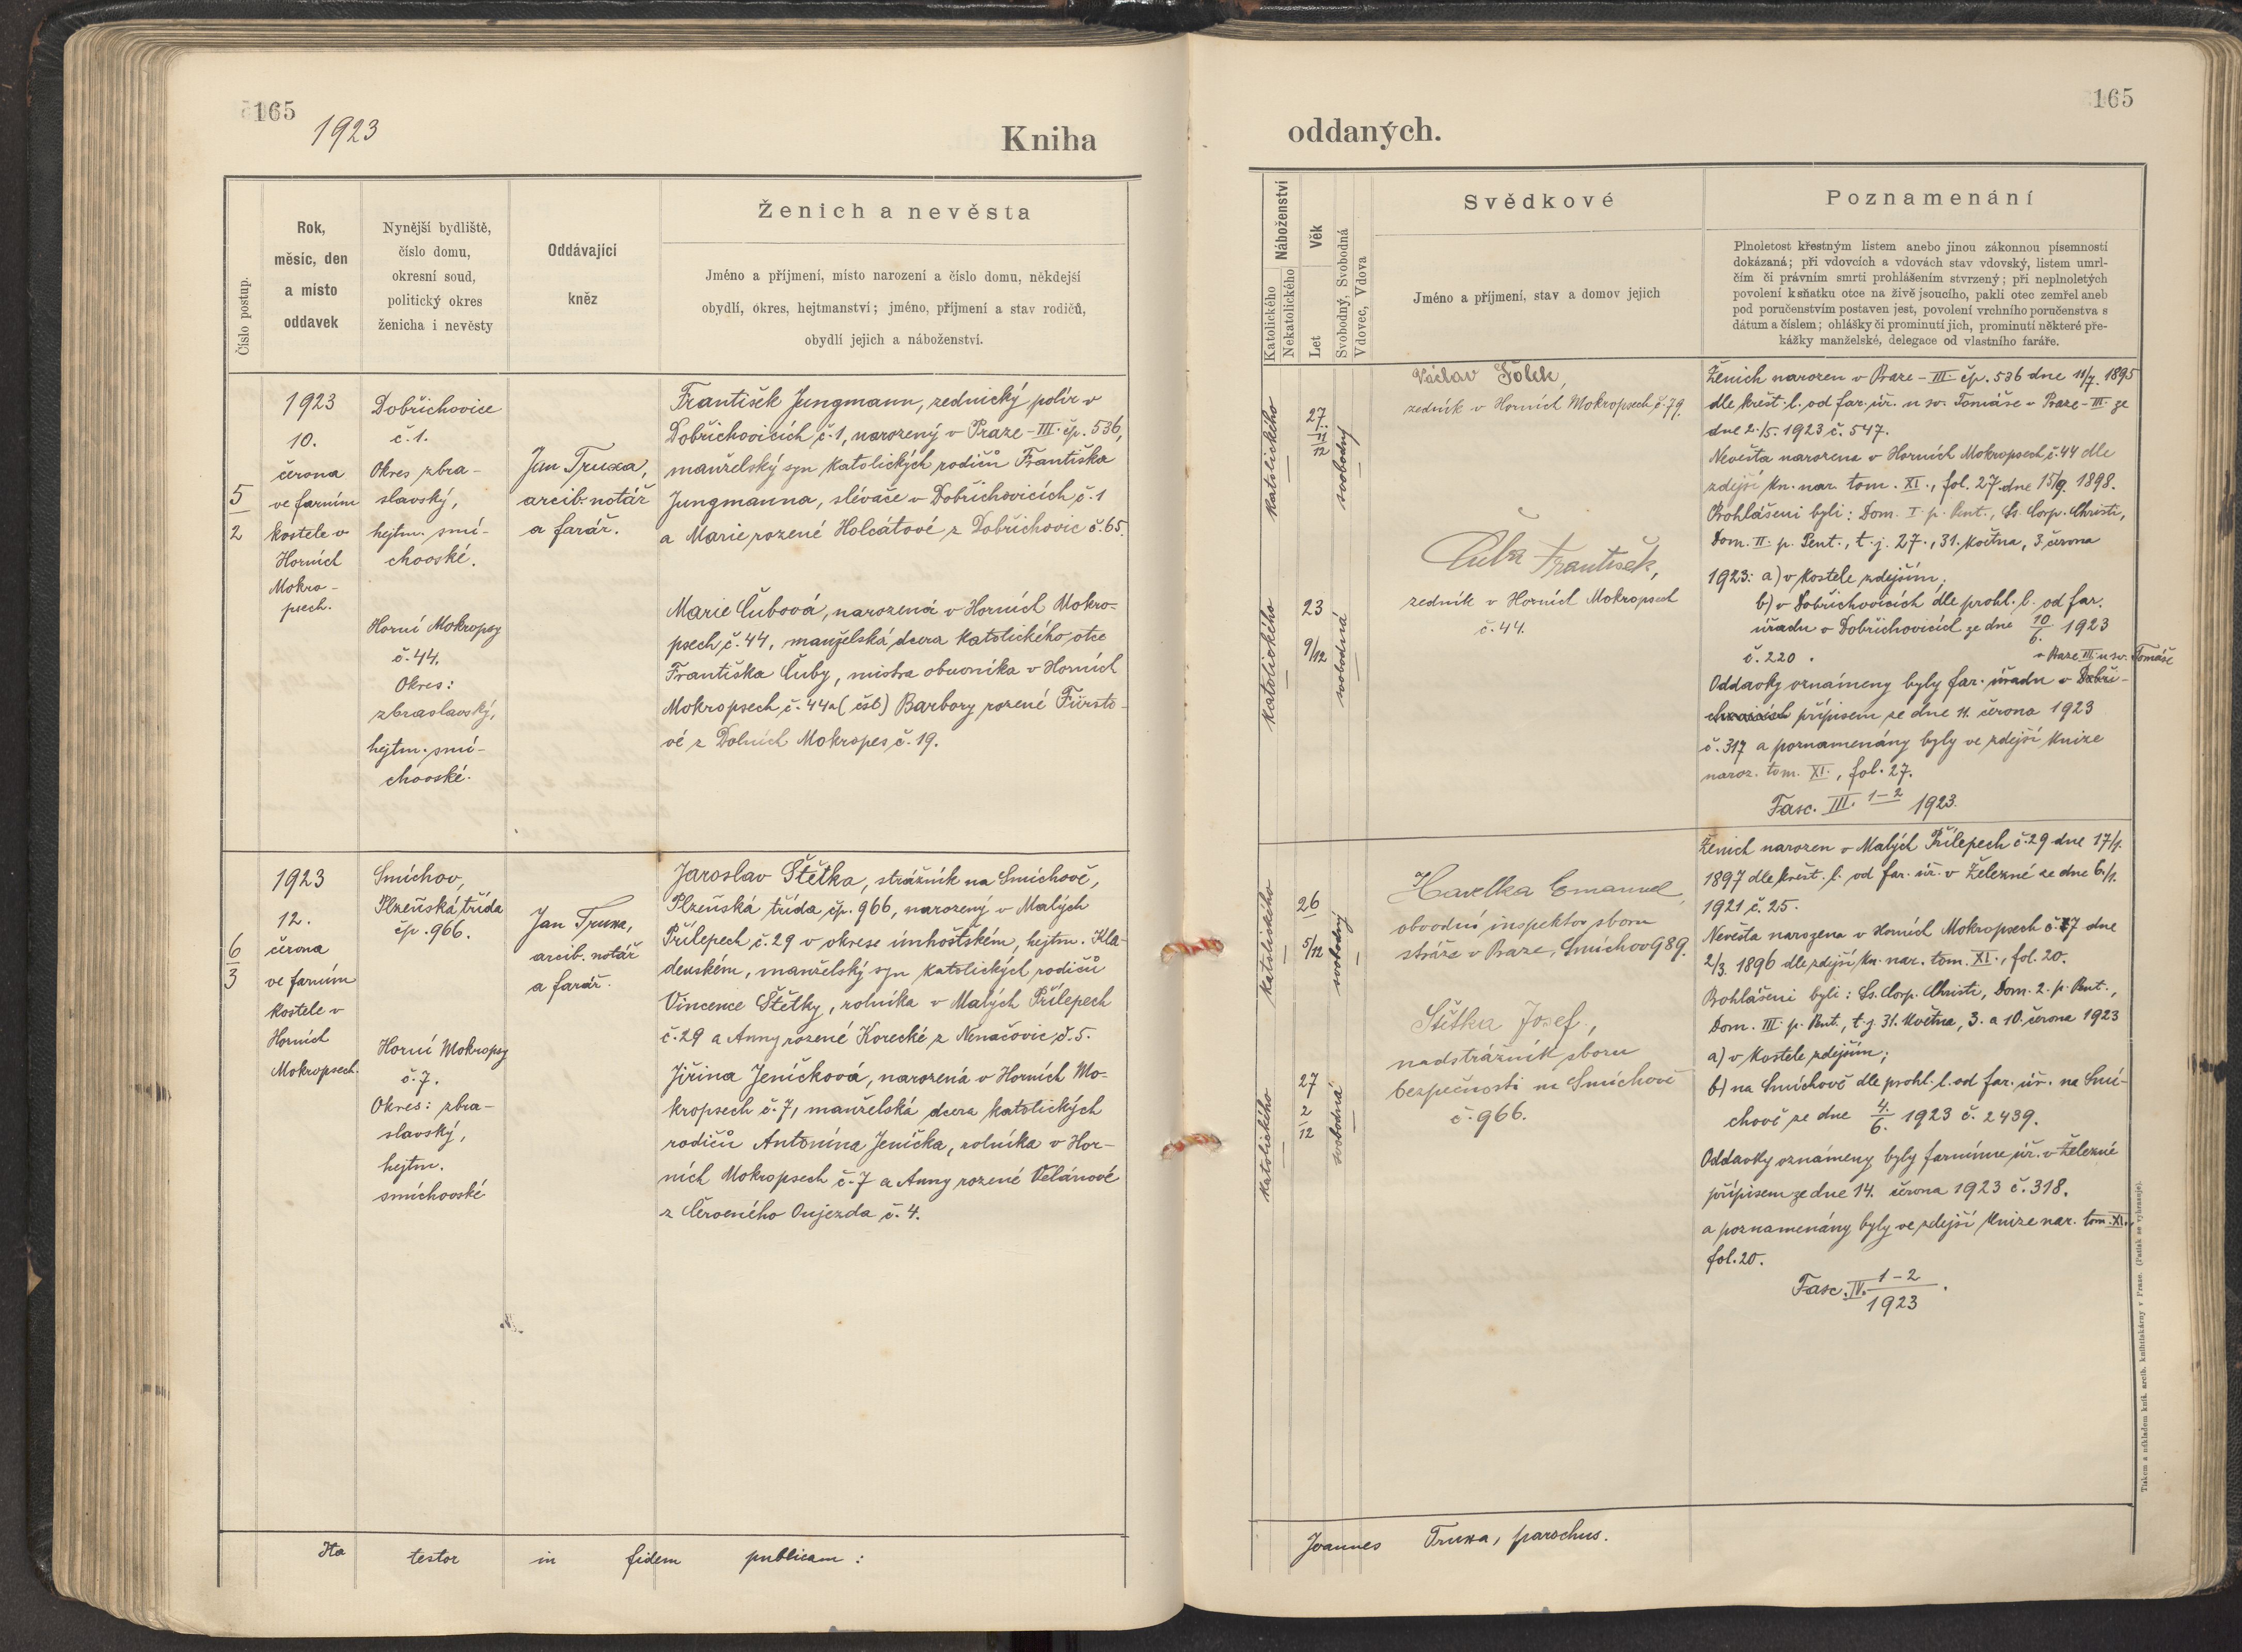 165
1923
Kniha
Číslo postup.
Rok,
měsíc, den
a místo
oddavek
Nynější bydliště,
číslo domu,
okresní soud,
politický okres
ženicha i nevěsty
Oddávající
kněz
Ženich a nevěsta
Jméno a příjmení, místo narození a číslo domu, někdejší
obydlí, okres, hejtmanství; jméno, příjmení a stav rodičů,
obydlí jejich a náboženství.
5
2
1923
10.
června
ve farním
kostele v
Horních
Mokro-
psech.
Dobřichovice
č. 1.
Okres zbra-
slavský,
hejtm. smí-
chovské.
Horní Mokropsy
č. 44.
Okres:
zbraslavský,
hejtm. smí-
chovské.
Jan Truxa,
arcib. notář
a farář.
František Jungmann, zednický polír v
Dobřichovicích č. 1, narozený v Praze-III. čp. 536,
manželský syn katolických rodičů Františka
Jungmanna, slévače v Dobřichovicích č. 1
a Marie rozené Holcátové z Dobřichovic č. 65.
Marie Čubová, narozená v Horních Mokro-
psech č. 44, manželská dcera katolického otce
Františka Čuby, mistra obuvníka v Horních
Mokropsech č. 44 a (čsl) Barbory rozené Fürsto-
vé z Dolních Mokropes č. 19.
6
3
1923
12.
června
ve farním
kostele v
Horních
Mokropsech.
Smíchov,
Plzeňská třída
čp. 966.
Horní Mokropsy
č. 7.
Okres: zbra-
slavský,
hejtm.
smíchovské
Jan Truxa,
arcib. notář
a farář.
Jaroslav Štětka, strážník na Smíchově,
Plzeňská třída, čp. 966, narozený v Malých
Přílepech č. 29 v okrese únhoštském, hejtm. Kla-
denském, manželský syn katolických rodičů
Vincence Štětky, rolníka v Malých Přílepech
č. 29 a Anny rozené Korecké z Nenačovic č. 5.
Jiřina Jeníčková, narozená v Horních Mo-
kropsech č. 7, manželská dcera katolických
rodičů Antonína Jeníčka, rolníka v Hor-
ních Mokropsech č. 7 a Anny rozené Velánové
z Červeného Oujezda č. 4.
Ita testor in fidem publicam:
165
oddaných.
Katolického
Nekatolického
Náboženství
Let
Věk
Svobodný, Svobodná
Vdovec, Vdova
Svědkové
Jméno a příjmení, stav a domov jejich
Poznamenání
Plnoletost křestným listem anebo jinou zákonnou písemností
dokázaná; při vdovcích a vdovách stav vdovský, listem umrl-
čím či právním smrti prohlášením stvrzený; při neplnoletých
povolení k sňatku otce na živě jsoucího, pakli otec zemřel aneb
pod poručenstvím postaven jest, povolení vrchního poručenstva s
dátum a číslem; ohlášky či prominutí jich, prominutí některé pře-
kážky manželské, delegace od vlastního faráře.
katolického
27
11
12
svobodný
katolického
23
9/12
svobodná
Václav Šolek,
zedník v Horních Mokropsech č. 79.
Čuba František,
zedník v Horních Mokropsech
č. 44.
Ženich narozen v Praze-III. čp. 536 dne 11/7. 1895
dle křest. l. od far. úř. u sv. Tomáše v Praze-III. ze
dne 2./5. 1923 č. 547.
Nevěsta narozena v Horních Mokropsech č. 44 dle
zdejší kn. nar. tom. XI., fol. 27. dne 15/9. 1898.
Prohlášeni byli: Dom. I. p. Pent., Ss. Corp. Christi,
Dom. II. p. Pent., t. j. 27., 31. května, 3. června
1923: a) v kostele zdejším;
b) v Dobřichovicích dle prohl. l. od far.
úřadu v Dobřichovicích ze dne 10/6. 1923
č. 220.
v Praze III. u sv. Tomáše
Oddavky oznámeny byly far. úřadu v Dobři-
chovicích přípisem ze dne 11. června 1923
č. 317 a poznamenány byly ve zdejší knize
naroz. tom. XI., fol. 27.
Fasc. III. 1-2 1923.
katolického
26
5/12
svobodný
katolického
27
2
12
svobodná
Havelka Emanuel,
obvodní inspektor sboru
stráže v Praze, Smíchov 989.
Štětka Josef,
nadstrážník sboru
bezpečnosti na Smíchově
č. 966.
Ženich narozen v Malých Přílepech č. 29 dne 17/1.
1897 dle křest. l. od far. úř. v Železné ze dne 6./1.
1921 č. 25.
Nevěsta narozena v Horních Mokropsech č. 7 dne
2/3. 1896 dle zdejší kn. nar. tom. XI., fol. 20.
Prohlášeni byli: Ss. Corp. Christi, Dom. 2. p. Pent.,
Dom. III. p. Pent., t. j. 31. května, 3. a 10. června 1923
a) v kostele zdejším;
b) na Smíchově dle prohl. l. od far. úř. na Smí-
chově ze dne 4./6. 1923 č. 2439.
Oddavky oznámeny byly farnímu úř. v Železné
přípisem ze dne 14. června 1923 č. 318.
a poznamenány byly ve zdejší knize nar. tom. XI.,
fol. 20.
Fasc. IV. 1-2
1923.
Joannes Truxa, parochus.
Tiskem a nákladem kníž. arcib. knihtiskárny v Praze. (Patisk se vyhrazuje).